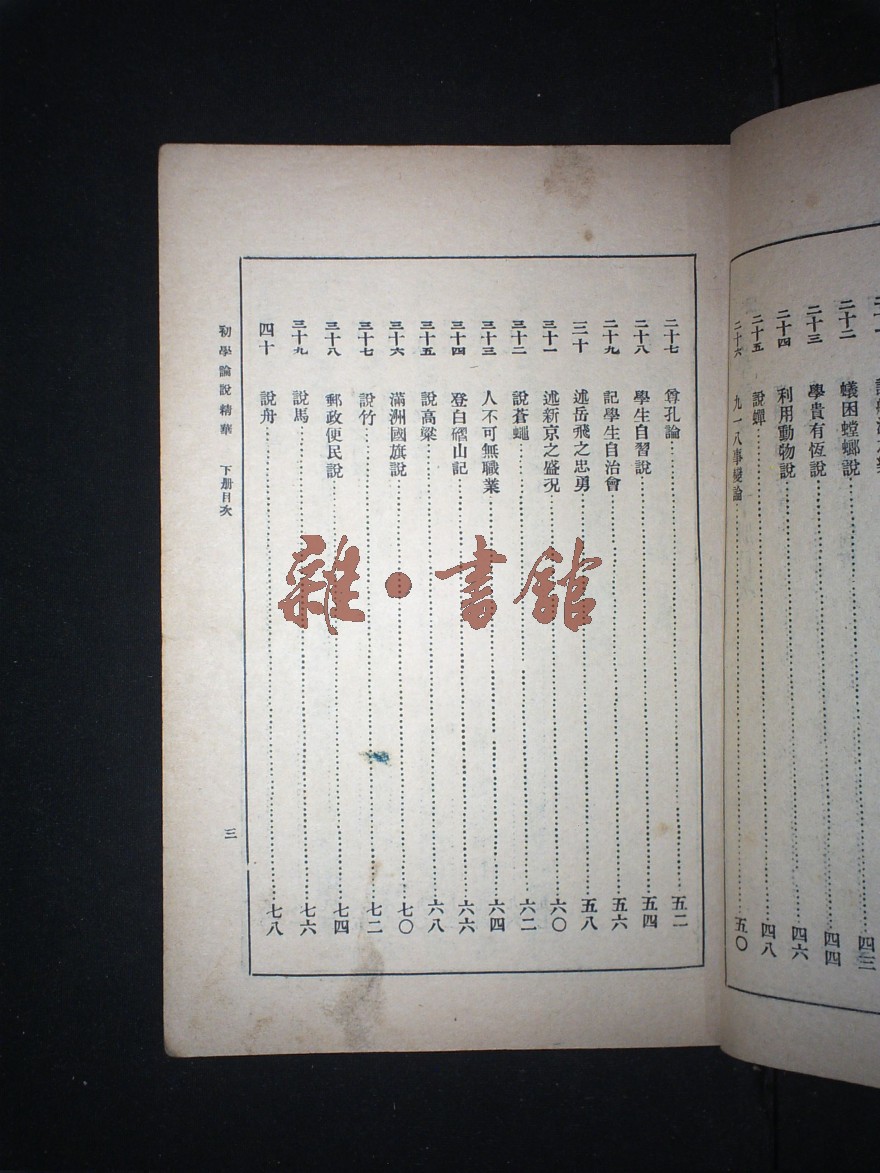 二十二 蟻困螳螂說……四三
二十三 學貴有恆說……四四
二十四 利用動物說……四六
二十五 說蟬……四八
二十六 九一八事變論……五〇
二十七 尊孔論……五二
二十八 學生自習說……五四
二十九 記學生自治會……五六
三十 述岳飛之忠勇……五八
三十一 述新京之盛况……六〇
三十二 說蒼蠅……六二
三十三 人不可無職業……六四
三十四 登白磖山記……六六
三十五 說高粱……六八
三十六 滿洲國旗說……七〇
三十七 說竹……七二
三十八 郵政便民說……七四
三十九 說馬……七六
四十 說舟……七八
初學論說精華 下册目次 三
雜·書館